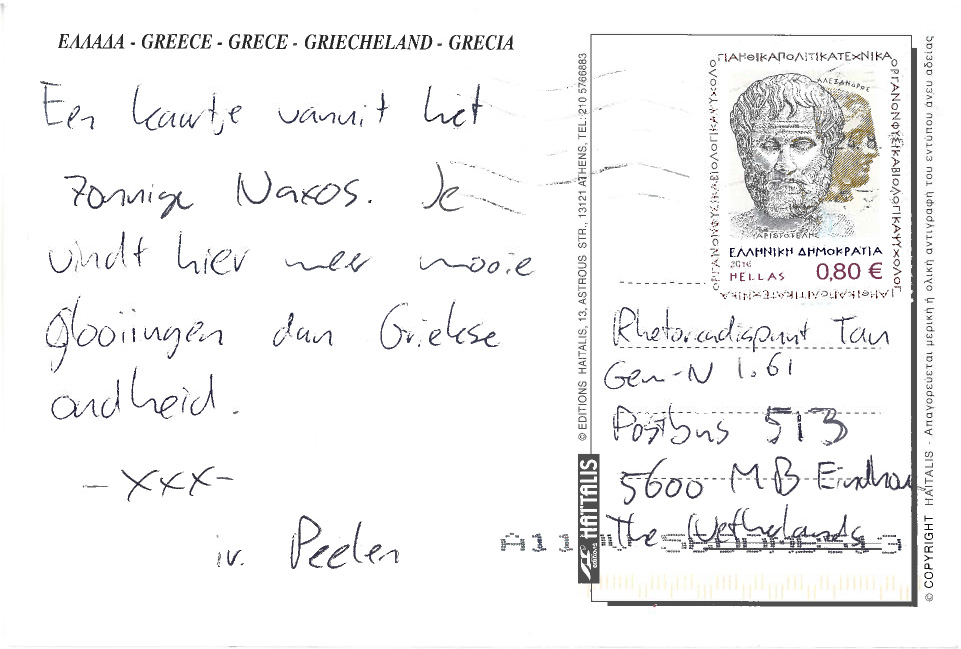 ΕΛΛΑΔΑ - GREECE - GRECE - GRIECHELAND - GRECIA
Een kaartje vanuit het
zonnige Naxos. Je
vindt hier meer mooie
glooiingen dan Griekse
oudheid.
- XXX -
ir. Peelen
© EDITIONS HAITALIS, 13, ASTROUS STR., 13121 ATHENS, TEL: 210 5766883
HAITALIS
editions
ΓΙΑΗΘΙΚΑΠΟΛΙΤΙΚΑΤΕΧΝΙΚΑ
ΟΡΓΑΝΟΝΦΥΣΙΚΑΒΙΟΛΟΓΙΚΑΨΥΧΟΛΟΓ
ΟΡΓΑΝΟΝΦΥΣΙΚΑΒΙΟΛΟΓΙΚΑΨΥΧΟΛΟ
ΑΛΕΞΑΝΔΡΟΣ
ΑΡΙΣΤΟΤΕΛΗΣ
ΕΛΛΗΝΙΚΗ ΔΗΜΟΚΡΑΤΙΑ
2016
HELLAS 0,80 €
ΓΙΑΗΘΙΚΑΠΟΛΙΤΙΚΑΤΕΧΝΙΚΑ
Rhetoricadispuut Tau
Gem-N 1.61
Postbus 513
5600 MB Eindhov
The Netherlands
© COPYRIGHT HAITALIS - Απαγορεύεται μερική ή ολική αντιγραφή του εντύπου άνευ αδείας